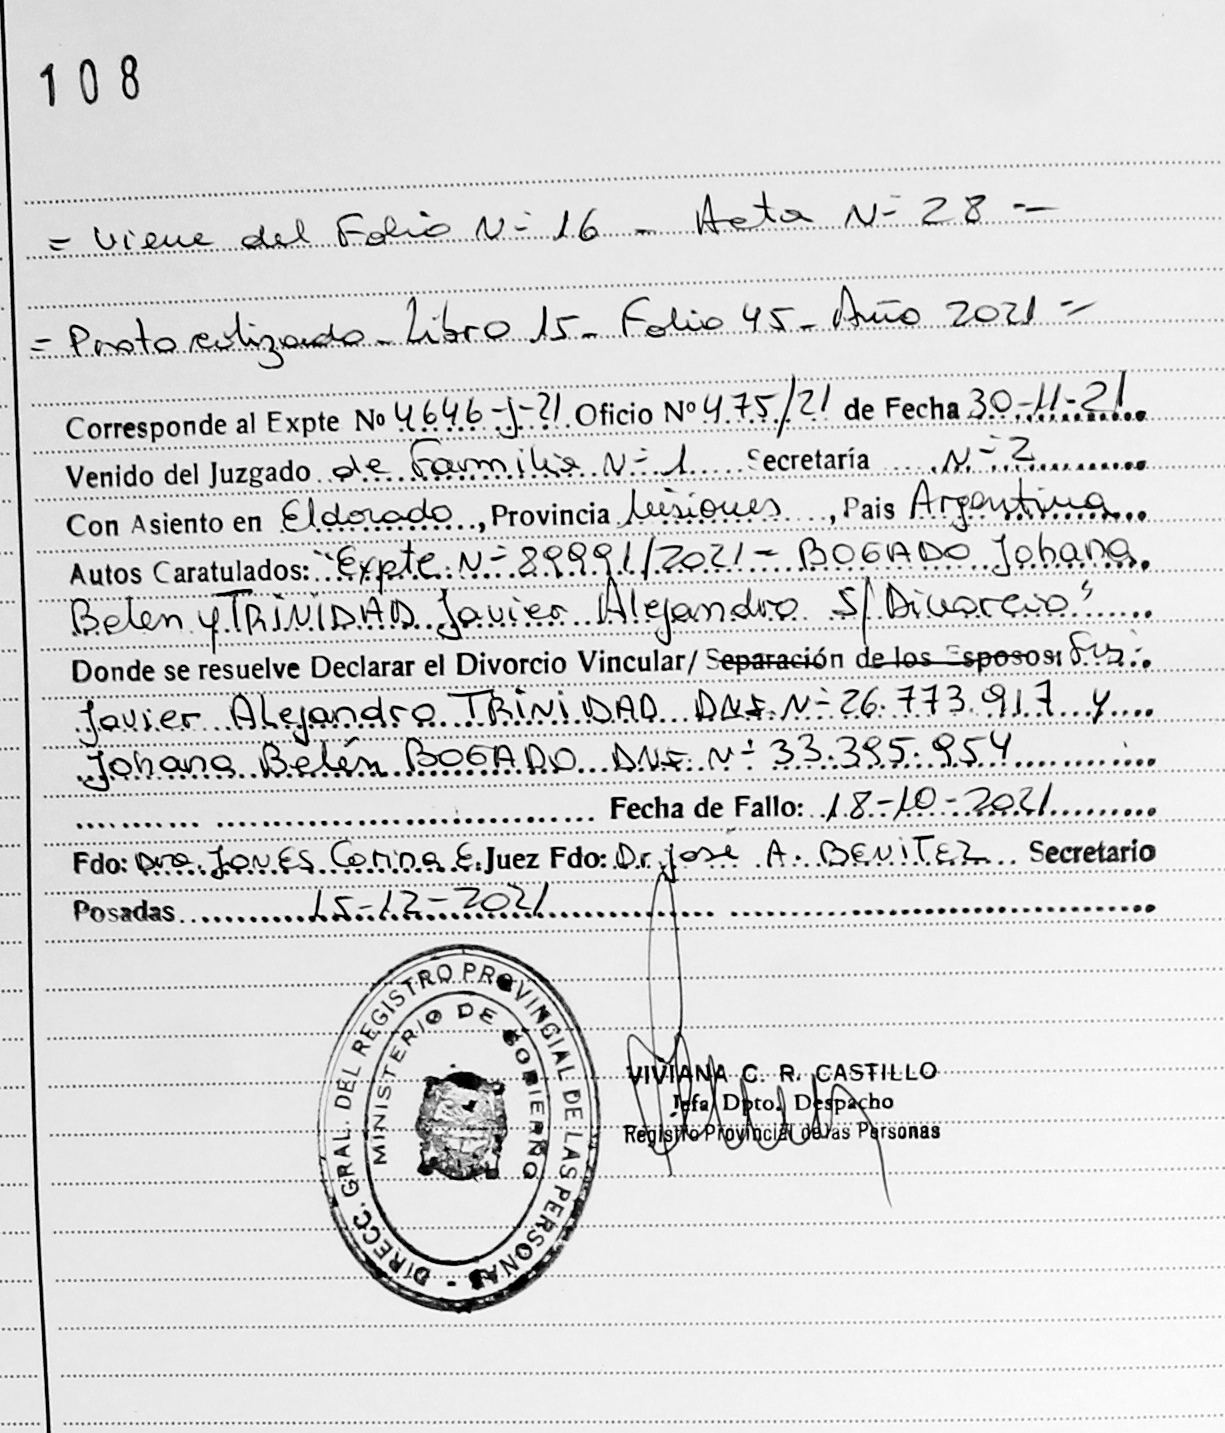 108
= Viene del Folio N- 16 - Acta N- 28 -
= Protocolizado - Libro 15 - Folio 45 - Año 2021 =
Corresponde al Expte No 4646-J-21 Oficio Nº 475/21 de Fecha 30-11-21
Venido del Juzgado de Familia N- 1 Secretaría N- 2
Con Asiento en Eldorado, Provincia Misiones, Pais Argentina
Autos Caratulados: "Expte N- 89991/2021 - BOGADO Johana
Belen y TRINIDAD Javier Alejandro S/ Divorcio"
Donde se resuelve Declarar el Divorcio Vincular/ Separación de los Esposos:
Javier Alejandro TRINIDAD DNI. N- 26.773.917 y
Johana Belén BOGADO DNI. N- 33.395.954
Fecha de Fallo: 18-10-2021
Fdo: Dra. JONES Corina E. Juez Fdo: Dr. José A. BENITEZ Secretario
Posadas 15-12-2021
DIRECC. GRAL. DEL REGISTRO PROVINCIAL DE LAS PERSONAS -
MINISTERIO DE GOBIERNO
VIVIANA C. R. CASTILLO
Jefa Dpto. Despacho
Registro Provincial de las Personas